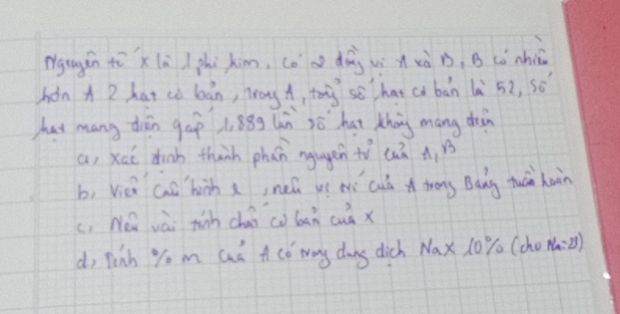 Nguyên tố X là 1 phi kim, có 2 đồng vị A và B, B có nhiều
hơn A 2 hạt cơ bản, trong A, tổng số hạt cơ bản là 52, số
hạt mang điện gấp 1,889 lần số hạt không mang điện
a, Xác định thành phần nguyên tử của A, B
b, Viết cấu hình e, nêu vị trí của A trong Bảng tuần hoàn
c, Nêu vài tính chất cơ bản của X
d, Tính % m của A có trong dung dịch NaX 10% (cho Na=23)